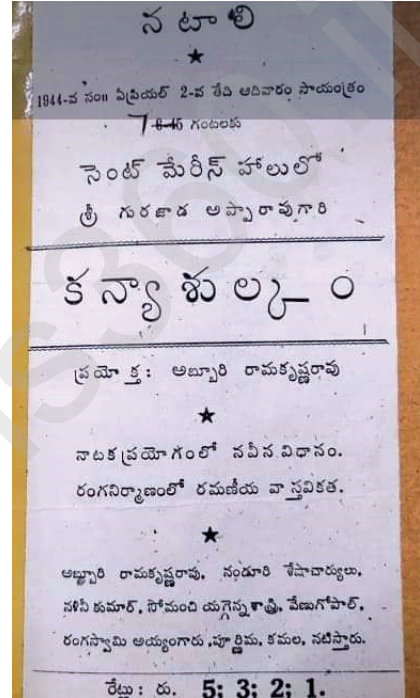 నటాలి
★
1944-వ సం॥ ఏప్రియల్ 2-వ తేది ఆదివారం సాయంత్రం
7 6-45 గంటలకు
సెంట్ మేరీస్ హాలులో
శ్రీ గురజాడ అప్పారావుగారి
కన్యాశుల్కం
ప్రయోక్త: అబ్బూరి రామకృష్ణరావు
★
నాటకప్రయోగంలో నవీనవిధానం.
రంగనిర్మాణంలో రమణీయ వాస్తవికత.
★
అబ్బూరి రామకృష్ణరావు, నండూరి శేషాచార్యులు,
నళినీ కుమార్, సోమంచి యగ్గెన్నశాస్త్రి, వేణుగోపాల్,
రంగస్వామి అయ్యంగారు, పూర్ణిమ, కమల, నటిస్తారు.
రేట్లు: రు. 5; 3; 2; 1